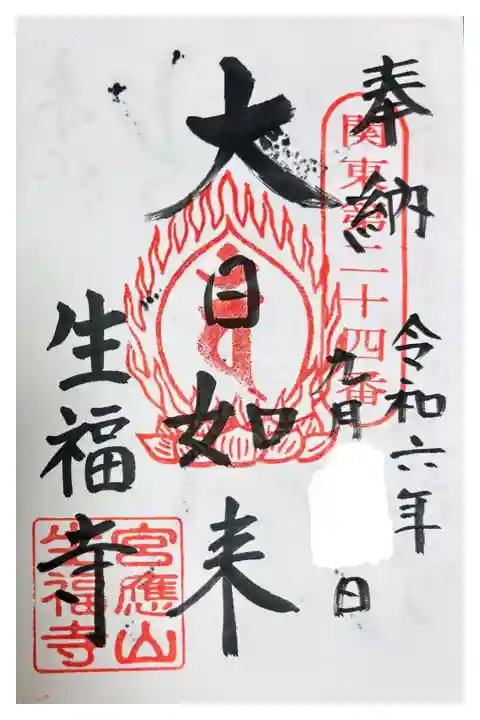 奉納
関東第二十四番
令和六年
九月
日
大日如来
生福寺
宮應山
生福寺